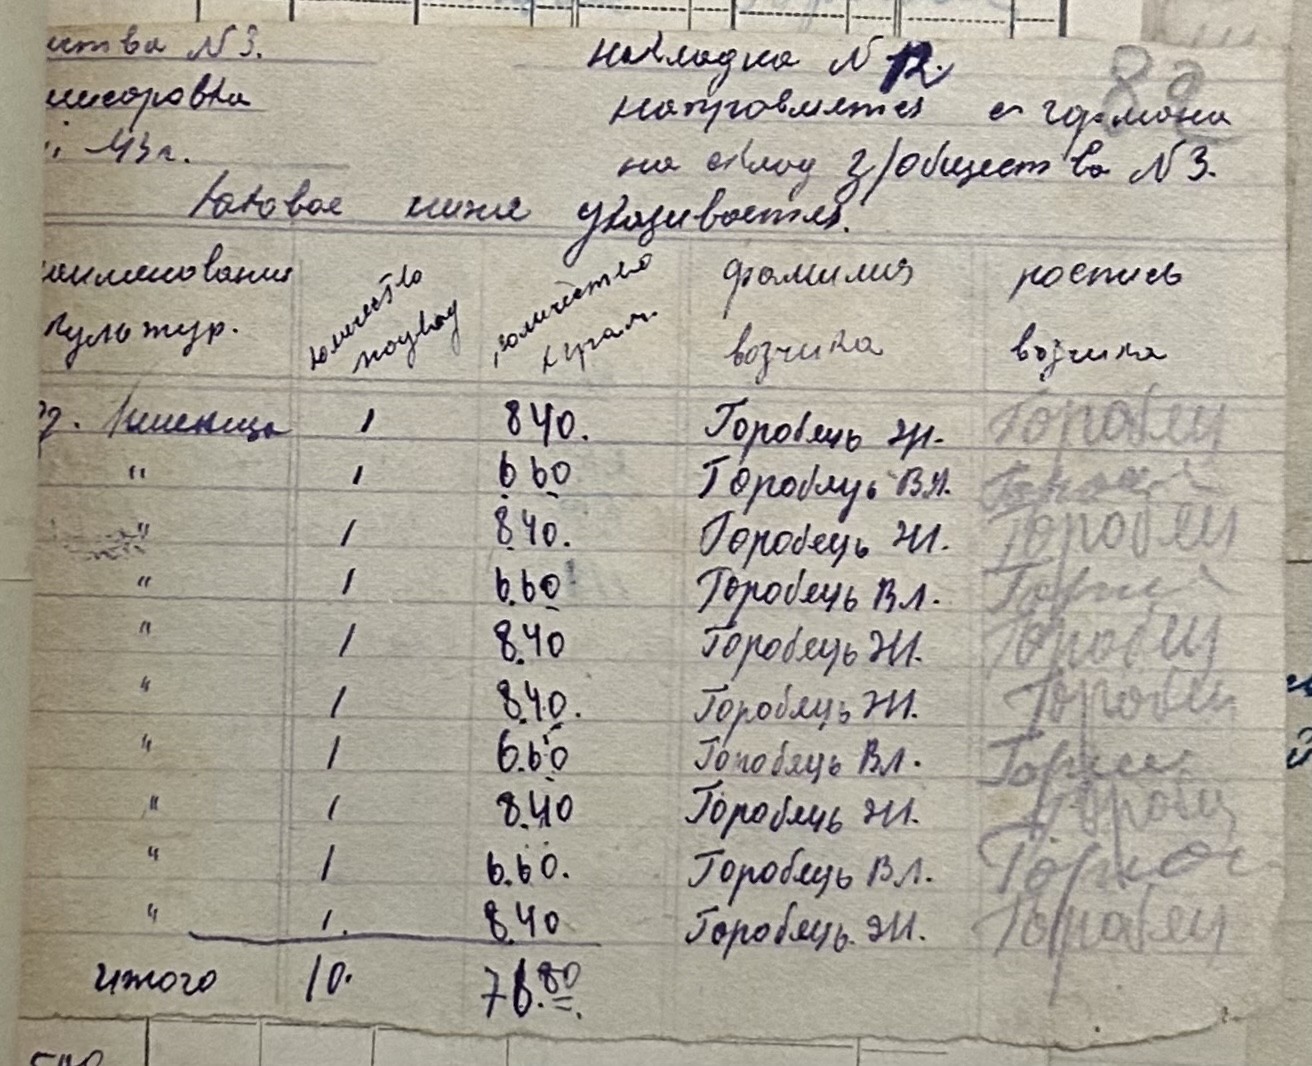 ства N 3. накладна N 12. 82
мисоровка направляется с гормана
43 г. на склад з/общества N 3.
таковое ниже указивается.
наименования количество подвод количество кграм. фамилия возчика роспись возчика
культур.
Пшеница 1 840. Горобець Ж. Горобец
" 1 660 Горобець Вл.
" 1 840. Горобець Ж. Горобец
" 1 660 Горобець Вл.
" 1 840 Горобець Ж. Горобец
" 1 840. Горобець Ж. Горобец
" 1 660 Горобець Вл.
" 1 840 Горобець Ж. Горобец
" 1 660. Горобець Вл.
" 1. 840 Горобець Ж. Горобец
итого 10. 76.80